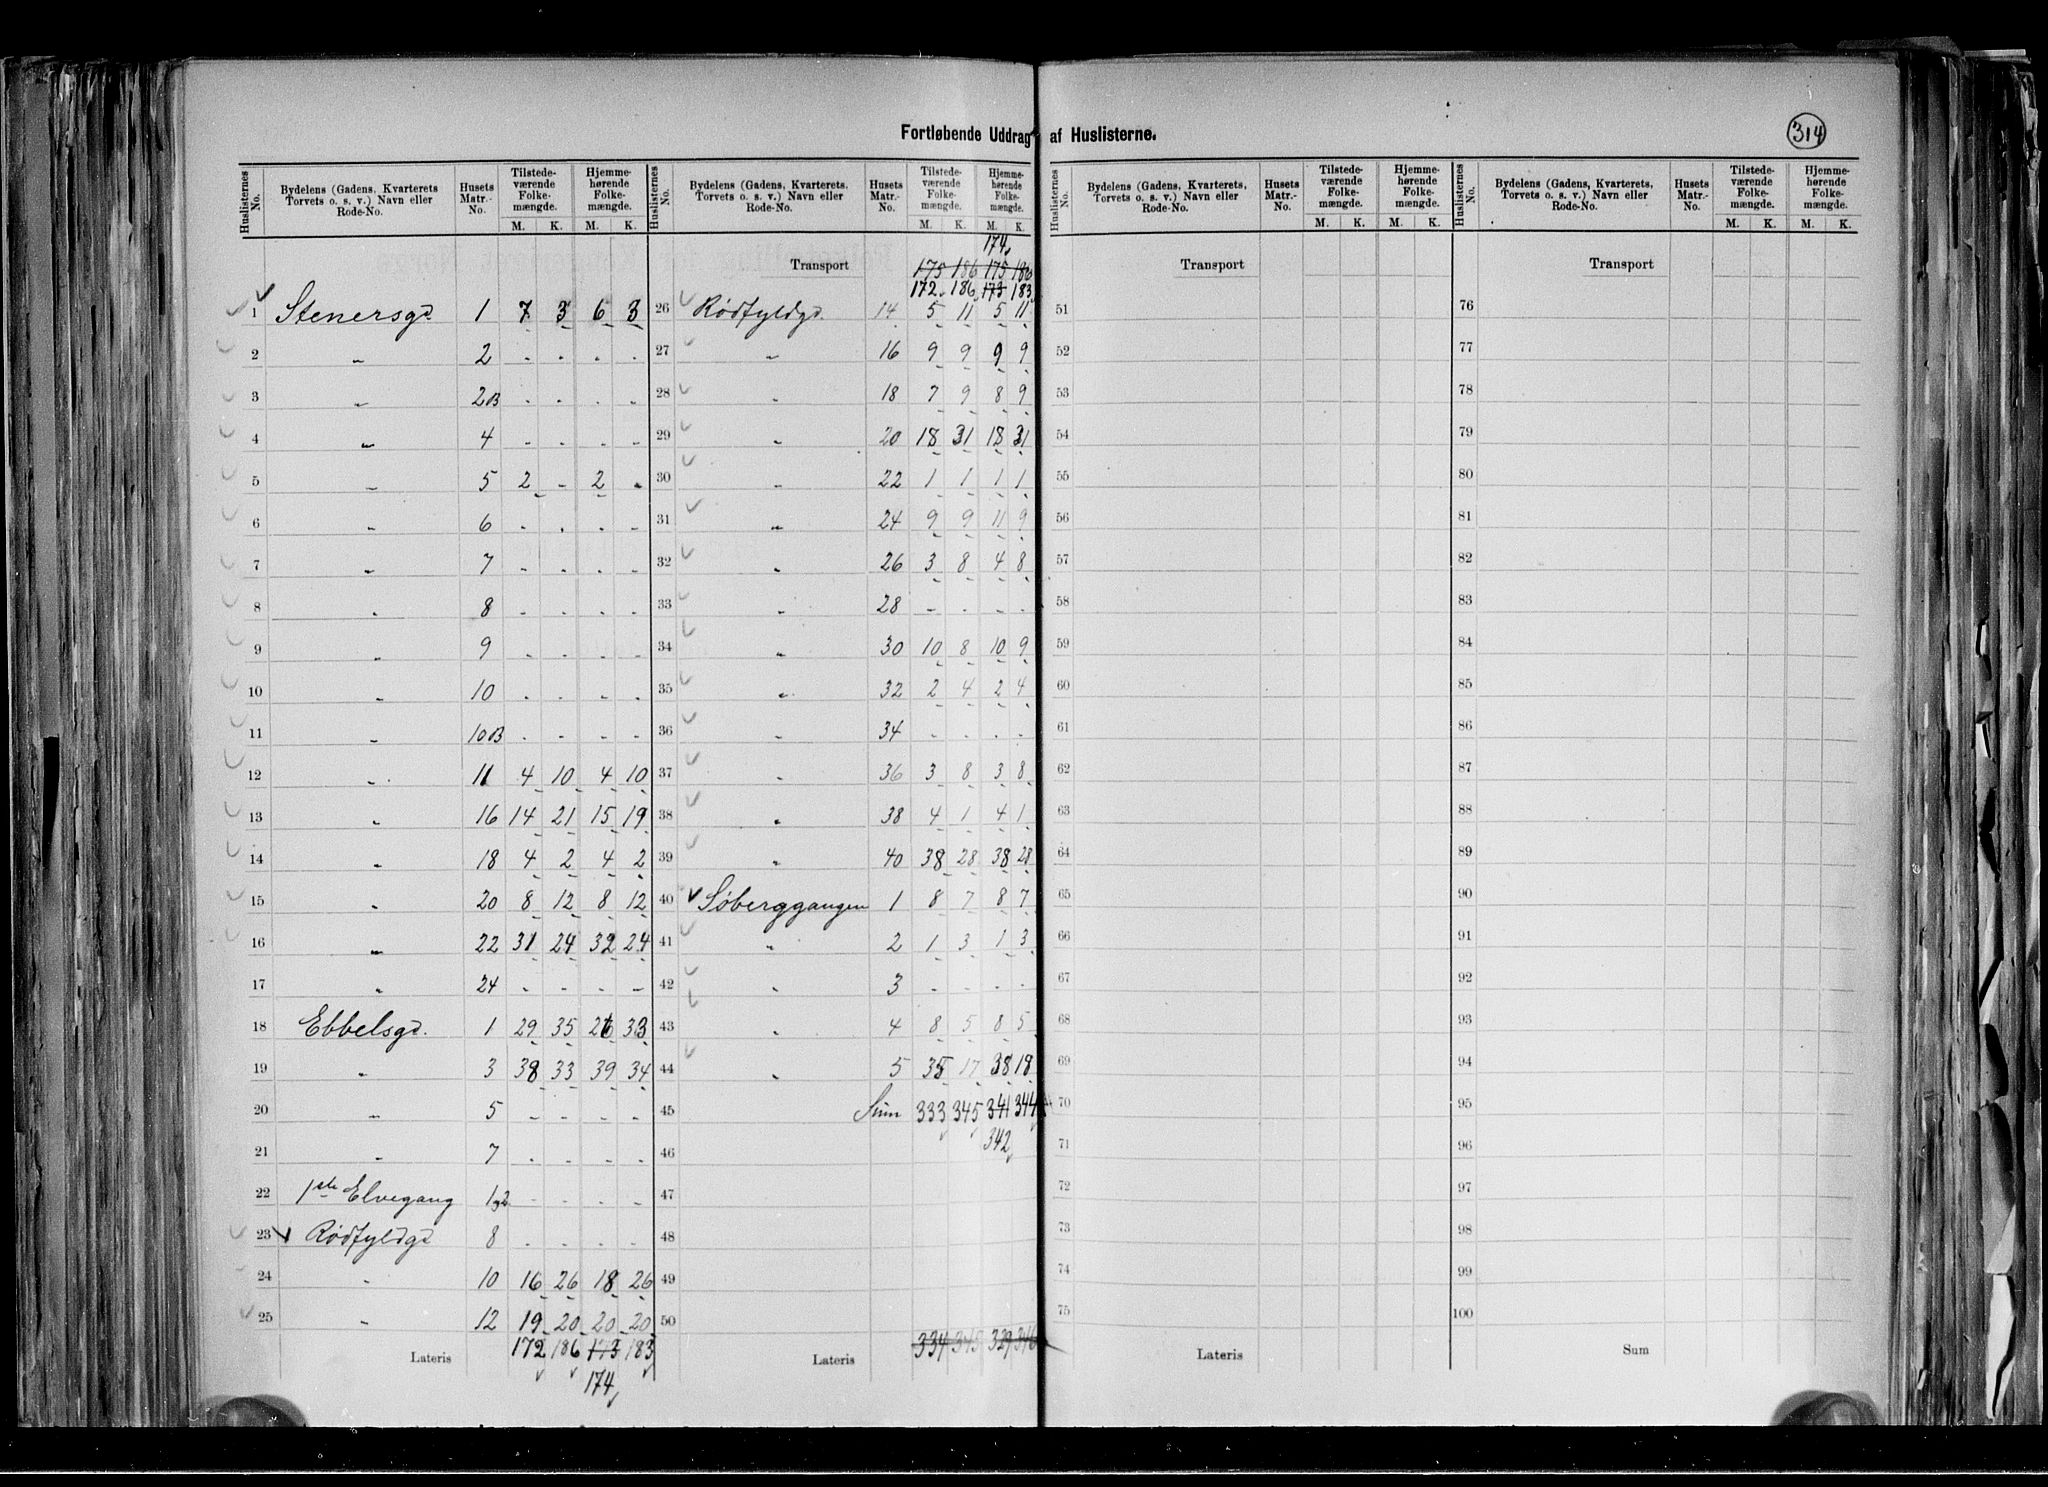 Fortløbende Uddrag af Huslisterne.
314
Huslisternes No. | Bydelens (Gadens, Kvarterets, Torvets o. s. v.) Navn eller Rode-No. | Husets Matr.-No. | Tilstedeværende Folkemængde. M. K. | Hjemmehørende Folkemængde. M. K.
1 Stenersgd. 1 7 3 6 3
2 „ 2 - - - -
3 „ 2B - - - -
4 „ 4 - - - -
5 „ 5 2 - 2 -
6 „ 6 - - - -
7 „ 7 - - - -
8 „ 8 - - - -
9 „ 9 - - - -
10 „ 10 - - - -
11 „ 10B - - - -
12 „ 11 4 10 4 10
13 „ 16 14 21 15 19
14 „ 18 4 2 4 2
15 „ 20 8 12 8 12
16 „ 22 31 24 32 24
17 „ 24 - - - -
18 Ebbelsgd. 1 29 35 26 33
19 „ 3 38 33 39 34
20 „ 5 - - - -
21 „ 7 - - - -
22 1ste Elvegang 1 2 - - - -
23 Rødfyldgd 8 - - - -
24 „ 10 16 26 18 26
25 „ 12 19 20 20 20
Lateris 172 186 173 183
174
Huslisternes No. | Bydelens (Gadens, Kvarterets, Torvets o. s. v.) Navn eller Rode-No. | Husets Matr.-No. | Tilstedeværende Folkemængde. M. K. | Hjemmehørende Folkemængde. M. K.
174
Transport 175 186 175 186
172 186 173 183
26 Rødfyldgd. 14 5 11 5 11
27 „ 16 9 9 9 9
28 „ 18 7 9 8 9
29 „ 20 18 31 18 31
30 „ 22 1 1 1 1
31 „ 24 9 9 11 9
32 „ 26 3 8 4 8
33 „ 28 - - - -
34 „ 30 10 8 10 9
35 „ 32 2 4 2 4
36 „ 34 - - - -
37 „ 36 3 8 3 8
38 „ 38 4 1 4 1
39 „ 40 38 28 38 28
40 Søberggangen 1 8 7 8 7
41 „ 2 1 3 1 3
42 „ 3 - - - -
43 „ 4 8 5 8 5
44 „ 5 35 17 38 18
45 Sum 333 345 341 344
342
46
47
48
49
50
Lateris 334 345 329 346
Huslisternes No. | Bydelens (Gadens, Kvarterets, Torvets o. s. v.) Navn eller Rode-No. | Husets Matr.-No. | Tilstedeværende Folkemængde. M. K. | Hjemmehørende Folkemængde. M. K.
Transport
51
52
53
54
55
56
57
58
59
60
61
62
63
64
65
66
67
68
69
70
71
72
73
74
75
Lateris
Huslisternes No. | Bydelens (Gadens, Kvarterets, Torvets o. s. v.) Navn eller Rode-No. | Husets Matr.-No. | Tilstedeværende Folkemængde. M. K. | Hjemmehørende Folkemængde. M. K.
Transport
76
77
78
79
80
81
82
83
84
85
86
87
88
89
90
91
92
93
94
95
96
97
98
99
100
Sum